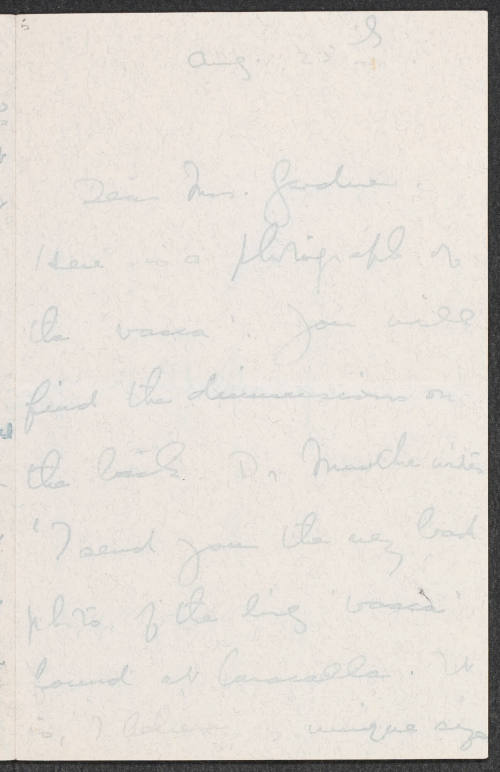 Aug. 25th
Dear Mrs. Gardner.
Here is a photograph of
the vasca. You will
find the dimensions on
the back. Dr writes
"I send you the very bad
photo. of the big 'vasca'
found at Caracalla. It
is, I believe, unique size